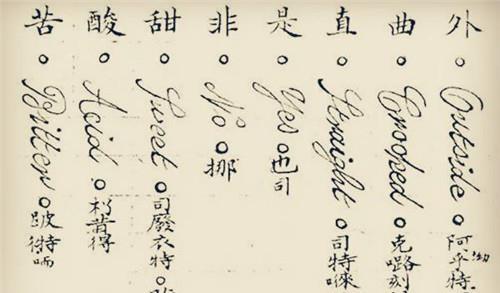 外 Outside 阿乎特
曲 Crooked 克嚕刻
直 Straight 司特喺
是 Yes 也司
非 No 挪
甜 Sweet 司廢衣特
酸 Acid
苦 Bitter 特